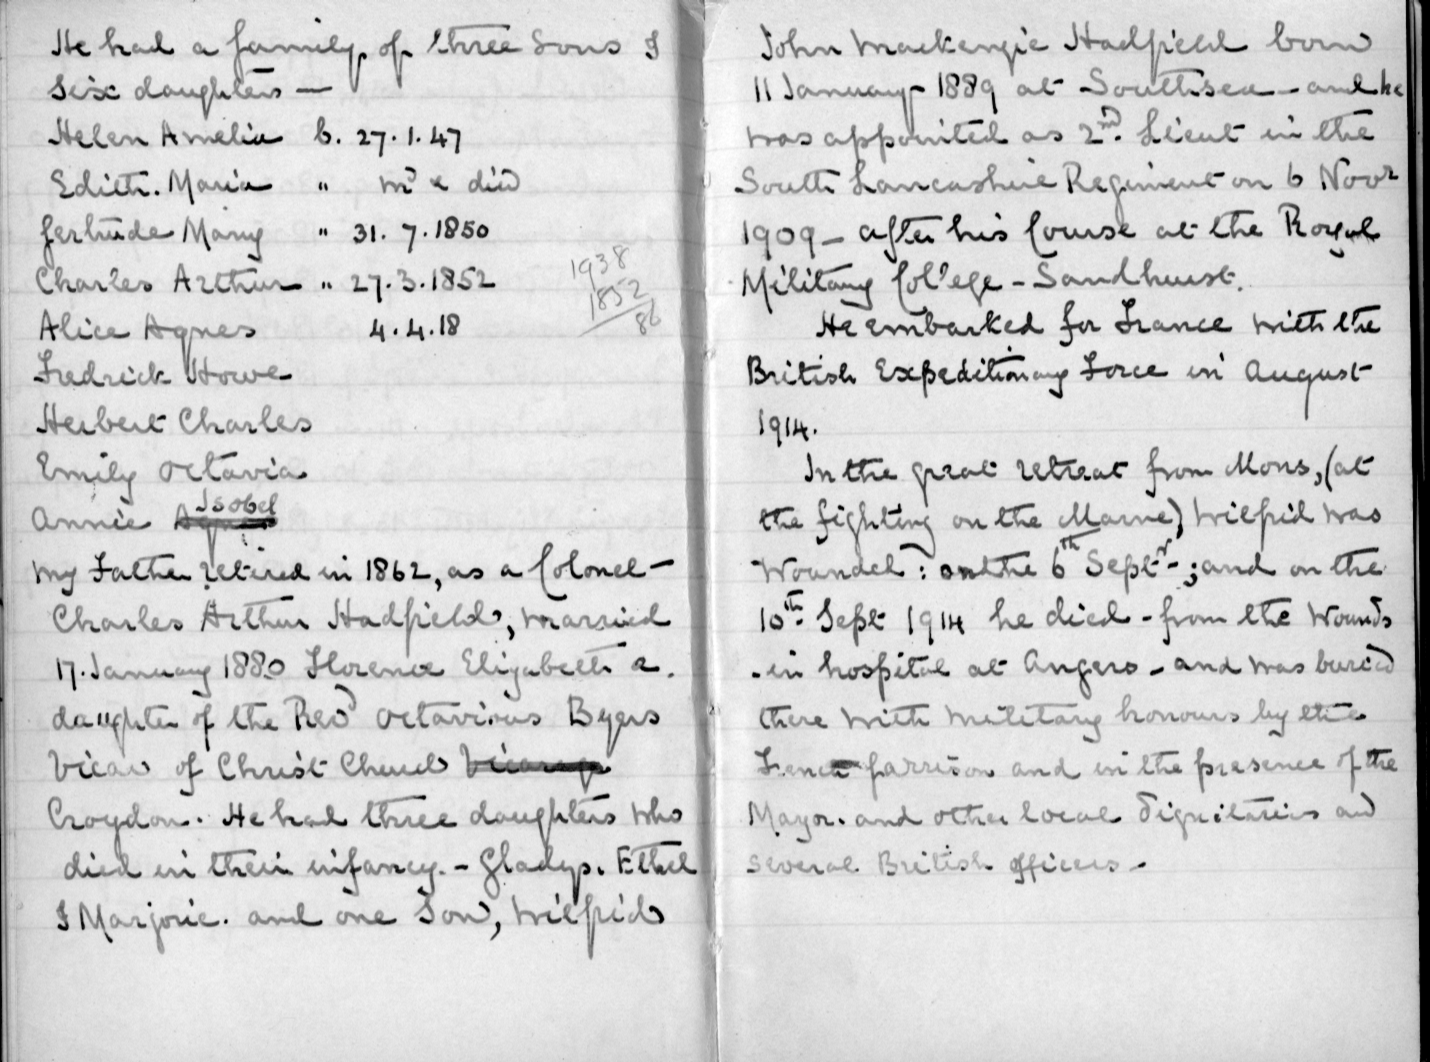 He had a family of three sons &
six daughters —
Helen Amelia b. 27.1.47
Edith. Maria " md & died
Gertrude Mary " 31.7.1850
Charles Arthur " 27.3.1852
1938
1852
86
Alice Agnes 4.4.18
Fredrick Howe
Herbert Charles
Emily Octavia
Annie Agnes Isobel
My Father retired in 1862, as a Colonel —
Charles Arthur Hadfield, married
17. January 1880 Florence Elizabeth a.
daughter of the Revd Octavious Byers
Vicar of Christ Church Vicarage
Croydon. He had three daughters who
died in their infancy. - Gladys. Ethel
& Marjorie. and one Son, Wilfrid
John Mackenzie Hadfield born
11 January 1889 at Southsea - and he
was appointed as 2nd. Lieut in the
South Lancashire Regiment on 6 Novr
1909 - after his Course at the Royal
Military Col'ege - Sandhurst.
He embarked for France with the
British Expeditionary Force in August
1914.
In the great retreat from Mons, (at
the fighting on the Marne) Wilfrid was
Wounded: on the 6th Septr -; and on the
10th. Sept 1914 he died - from the Wounds
- in hospital at Angers - and was buried
there with military honours by the
French garrison and in the presence of the
Mayor. and other local dignitaries and
several British officers -